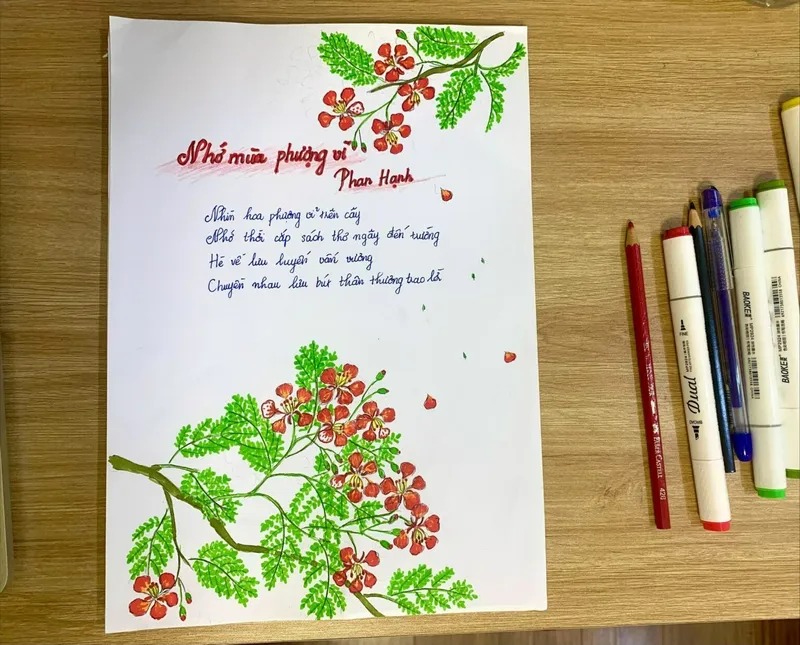 Nhớ mùa phượng vĩ
Phan Hạnh
Nhìn hoa phượng vĩ trên cây
Nhớ thời cấp sách thơ ngây đến trường
Hè về lưu luyến vấn vương
Chuyền nhau lưu bút thân thương trao lời
FABER-CASTELL
426
FINE
Dual
BROAD
BAOKE
BAOKE